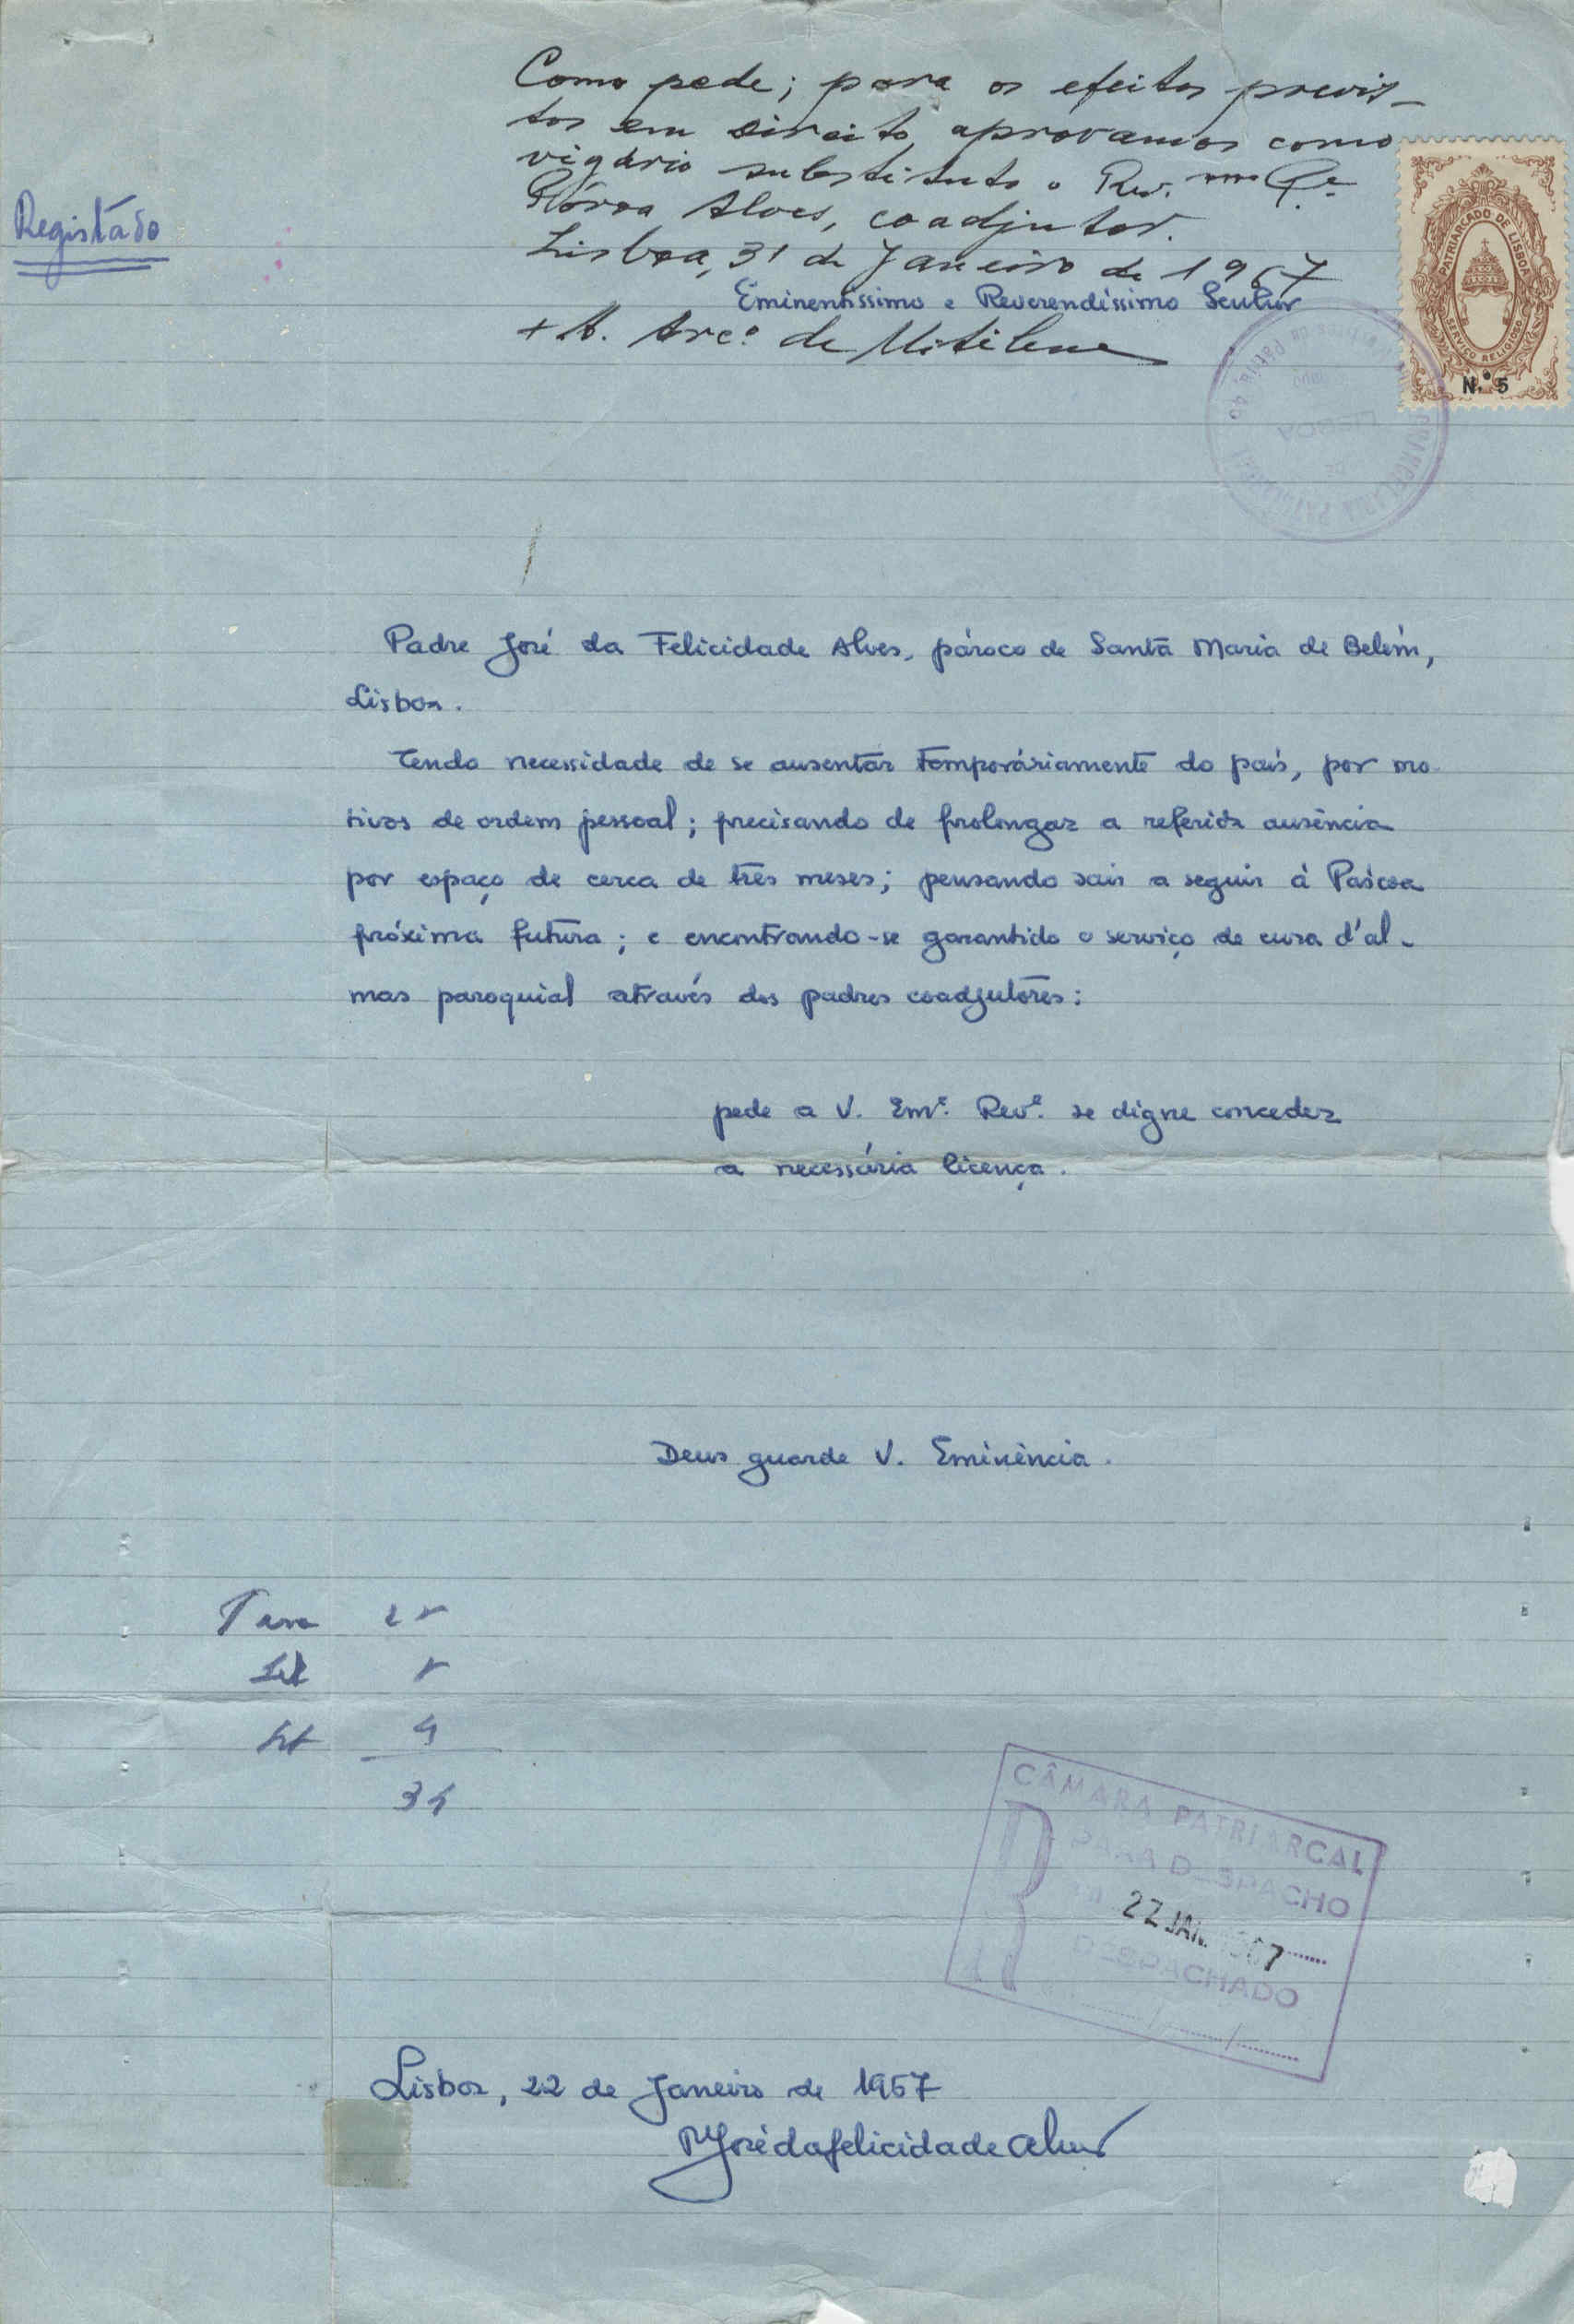 Como pede; para os efeitos previs-
tos em direito, aprovamos como
vigário substituto o Rev.mo P.e
Alves, coadjutor.
Lisboa, 31 de Janeiro de 1967
Registado
PATRIARCADO DE LISBOA
SERVIÇO RELIGIOSO
N.º 5
Eminentíssimo e Reverendíssimo Senhor
+ M. Arc.º de Mitilene
LISBOA
Padre José da Felicidade Alves, pároco de Santa Maria de Belém,
Lisboa.
Tendo necessidade de se ausentar temporáriamente do país, por mo-
tivos de ordem pessoal; precisando de prolongar a referida ausência
por espaço de cerca de três meses; pensando sair a seguir à Páscoa
próxima futura; e encontrando-se garantido o serviço de cura d'al-
mas paroquial através dos padres coadjutores:
pede a V. Em.ª Rev.ª se digne conceder
a necessária licença.
Deus guarde V. Eminência.
4
34
CÂMARA PATRIARCAL
PARA DESPACHO
22 JAN. 1967
DESPACHADO
Lisboa, 22 de Janeiro de 1967
P. José da Felicidade Alves